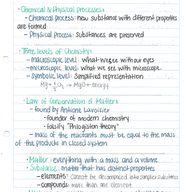 • Chemical & Physical processes:
• Chemical process: new substance with different properties
are formed
- Physical process: Substances are preserved
• Three levels of Chemistry:
- macroscopic level: what we see with our eyes
- microscopic level: what we see with microscope
- Symbolic level: Simplified representation
Mg + ½O₂ → MgO + energy
• Law of Conservation of Matter:
- found by Antoine Lavoisier
- founder of modern chemistry
- falsify "Phlogiston theory"
- mass of the reactants must be equal to the mass
of the products in closed system
• Matter: everything with a mass and a volume
• Substance: matter that has distinct properties
- elements: Cannot be decomposed into simpler substances
- compounds: more than one element